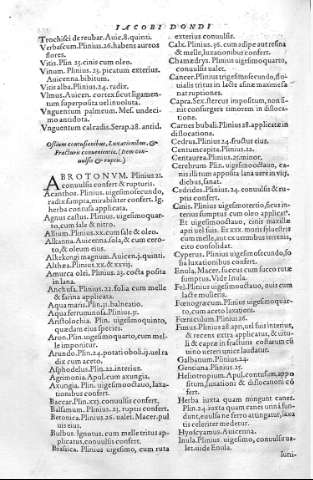 IACOBI DONDI
Trochisci de reubar. Auic. 8. quinti.
Verbascum. Plinius. 26. habens aureos
flores.
Vitis. Plin. 23. cinis cum oleo.
Vinum. Plinius. 23. picatum exterius.
Auicenna bibitum.
Vitis alba. Plinius. 24. radix.
Vlmus. Auicen. cortex sicut ligamen-
tum superposita uel inuoluta.
Vnguentum palmeum. Mes. undeci-
mo antidota.
Vnguentum calcadis. Serap. 28. antid.
Ossium contusionibus, Luxationibus, &
Fracturæ conuenientia, (Item con-
uulsis & ruptis.)
ABROTONVM. Plinius 21.
conuulsis confert & rupturis.
Acanthos. Plinius. uigesimosecundo,
radix sumpta, mirabiliter confert. Ig.
herba contusa applicata.
Agnus castus. Plinius. uigesimoquar-
to, cum sale & nitro.
Allium. Plinius. xx. cum sale & oleo.
Alkanna. Auicenna. sola, & cum cero-
to, & oleum eius.
Alkekengi magnum. Auicen. 3. quinti.
Althæa. Plinius. xx. & xxvi.
Amurca olei. Plinius. 23. cocta posita
in lana.
Anchusa. Plinius. 22. folia cum melle
& farina applicata.
Aqua maris. Plin. 31. balneatio.
Aqua ferrum
Aristolochia. Plin. uigesimoquinto,
quædam eius species.
Aron. Plin. uigesimoquarto, cum mel-
le imponitur.
Arundo. Plin. 24. potari oboli. ij. uel ra
dix cum aceto.
Asphodelus. Plin. 22. interius.
Agemonia. Apul. cum axungia.
Axungia. Plin. uigesimooctauo, luxa-
tionibus confert.
Baccar. Plin. xxj. conuulsis confert.
Balsamum. Plinius. 23. ruptis confert.
Betonica. Plinius 26. ualet. Macer. pul
uis eius.
Bulbus. Ignotus. cum melle tritus ap-
plicatus, conuulsis confert.
Brasica. Plinius uigesimo, cum ruta
exterius conuulsis.
Calx. Plinius. 36. cum adipe aut resina
& melle, luxatis confert.
Chamædrys. Plinius uigesimoquarto,
conuulsis ualet.
Cancer. Plinius trigesimosecundo, flu-
uialis tritus in lacte asinæ maxime fa
nat ruptiones.
Capra. Ser. stercus impositum, non si-
nit consurgere timorem in disloca-
tione.
Carnes bubali. Plinius 28. applicatæ in
dislocatione.
Cedrus. Plinius. 24. fructus eius.
Centum capita. Plinius. 22.
Centaurea. Plinius. 25. minor.
Cerebrum. Plin. uigesimooctauo, ca-
nis illitum apposita lana uere in uig.
diebus, sanat.
Cedrides. Plinius. 24. conuulsis & ru-
ptis confert.
Cinis. Plinius uigesimotertio, ficus in-
terius sumptus cum oleo applicat.
Et uigesimooctauo, cinis maxillæ
apri uel suis. Ex xxx. moris sylueſtris
cum melle, aut ex unguibus
cito consolidat.
Cyperus. Plinius uigesimosecundo, fo-
lia luxationibus confert.
Enula. Macer. succus cum succo rutæ
sumptus. Vide Inula.
Fel. Plinius uigesimooctauo, ouis cum
lacte mulieris.
Fœnogræcum. Plinius uigesimoquar-
to, cum aceto luxationi.
Fœniculum. Plinius 26.
Fimus. Plinius 28. apri, uel suis interius,
& recens extra applicatus, & uitu-
li & capræ in fracturis costarum
uino uetere unice laudatur.
Galbanum. Plinius. 24.
Gentiana. Plinius 25.
Heliotropium. Apul. contusum, appo
situm, luxationi & dislocationi con-
fert.
Herba iuxta quam mingunt canes.
Plin. 24. iuxta quam canes urinam
fundunt, euulsa ne ferro attingatur, luxa
tis celeriter medetur.
Hyoscyamus. Auicenna.
Inula. Plinius uigesimo, conuulsis ua-
let. uide Enula.
Iuni-